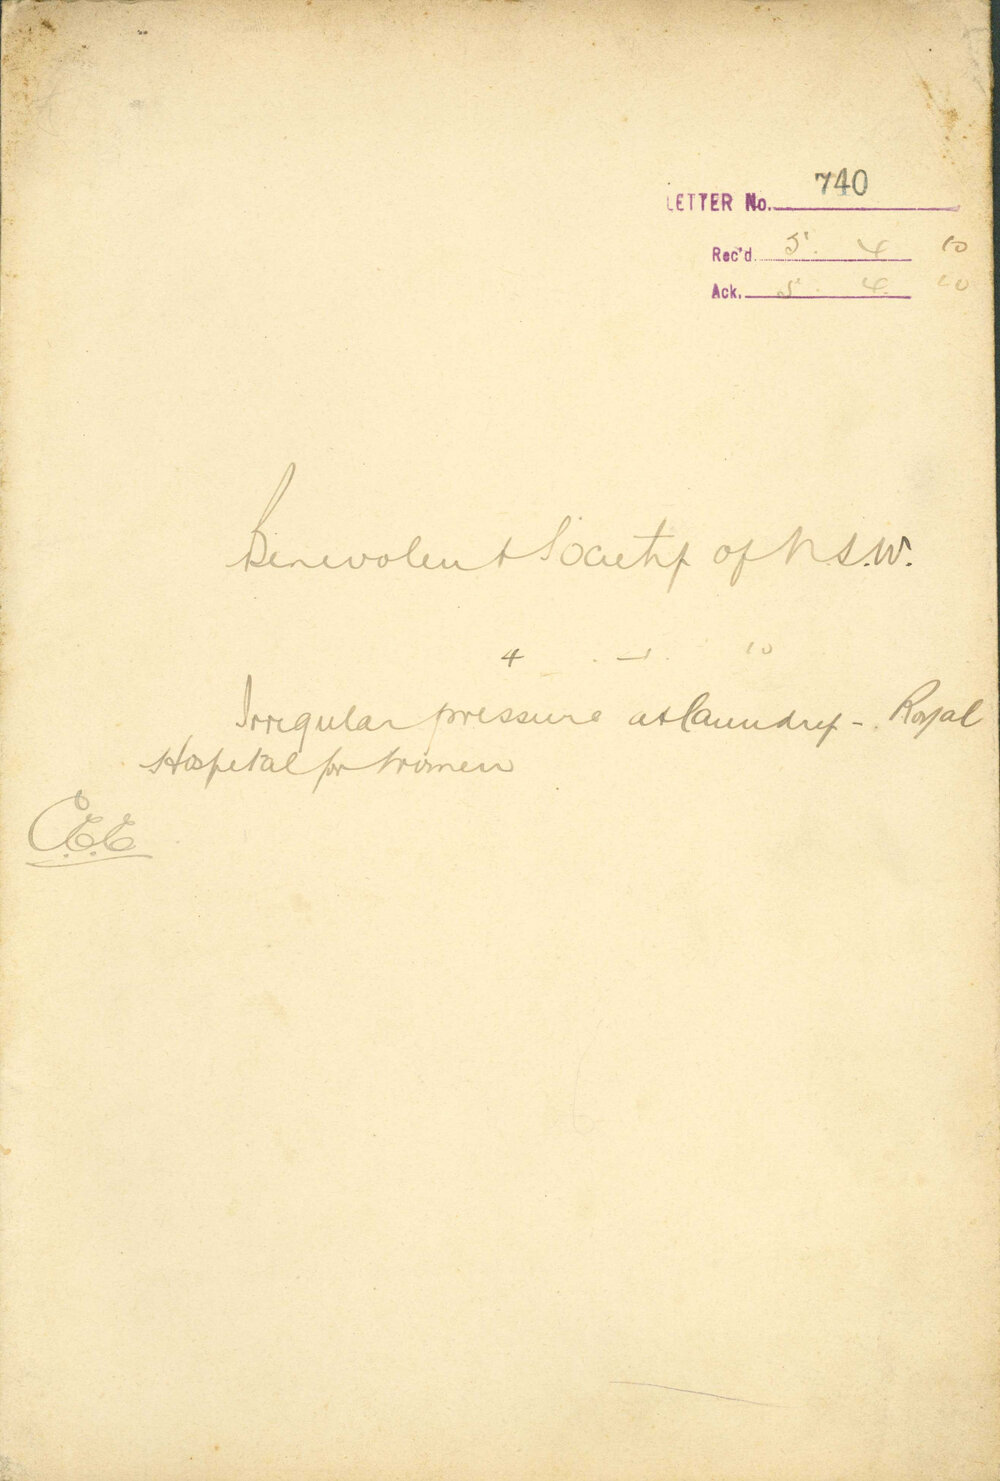 LETTER No. 740
Rec'd. 5. 4 10
Ack. 5. 4. 10
Benevolent Society of N.S.W.
4 10
Irregular pressure at laundry - Royal
Hospital for Women
C.E.E